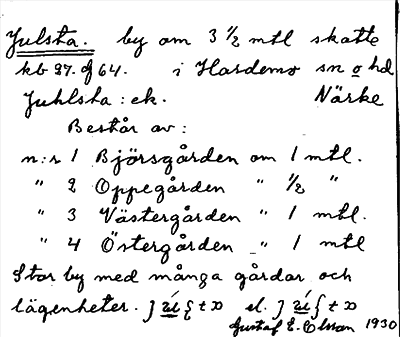 Julsta. by om 3 1/2 mtl skatte
kb 97. of 64. i Hardemo sn o hd
Juhlsta : ek. Närke
Består av :
n:r 1 Björsgården om 1 mtl.
" 2 Oppegården " 1/2 "
" 3 Västergården " 1 mtl.
" 4 Östergården " 1 mtl
Stor by med många gårdar och
lägenheter. el.
Gustaf E. Olsson 1930